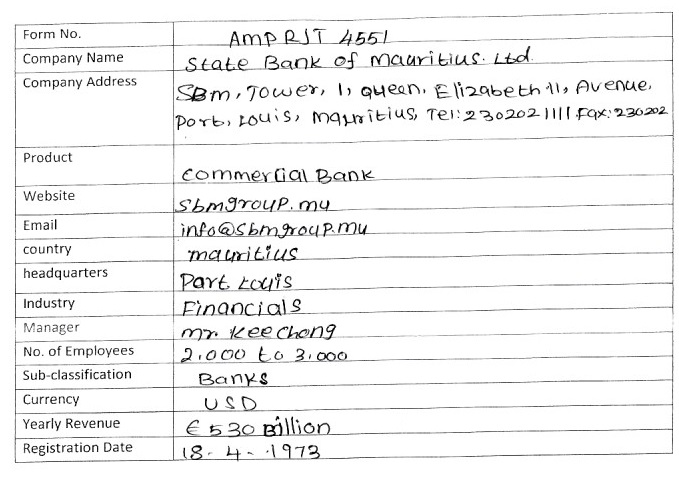 Form No. AMP RJT 4551
Company Name State Bank of Mauritius. Ltd.
Company Address SBM, Tower, 1, Queen, Elizabeth 11, Avenue,
Port, Louis, Mauritius, Tel: 230202 1111 Fax: 230202
Product Commercial Bank
Website sbmgroup.mu
Email info@sbmgroup.mu
country mauritius
headquarters Port Louis
Industry Financials
Manager Mr. Kee Chong
No. of Employees 2,000 to 3,000
Sub-classification Banks
Currency USD
Yearly Revenue € 530 Billion
Registration Date 18-4-1973